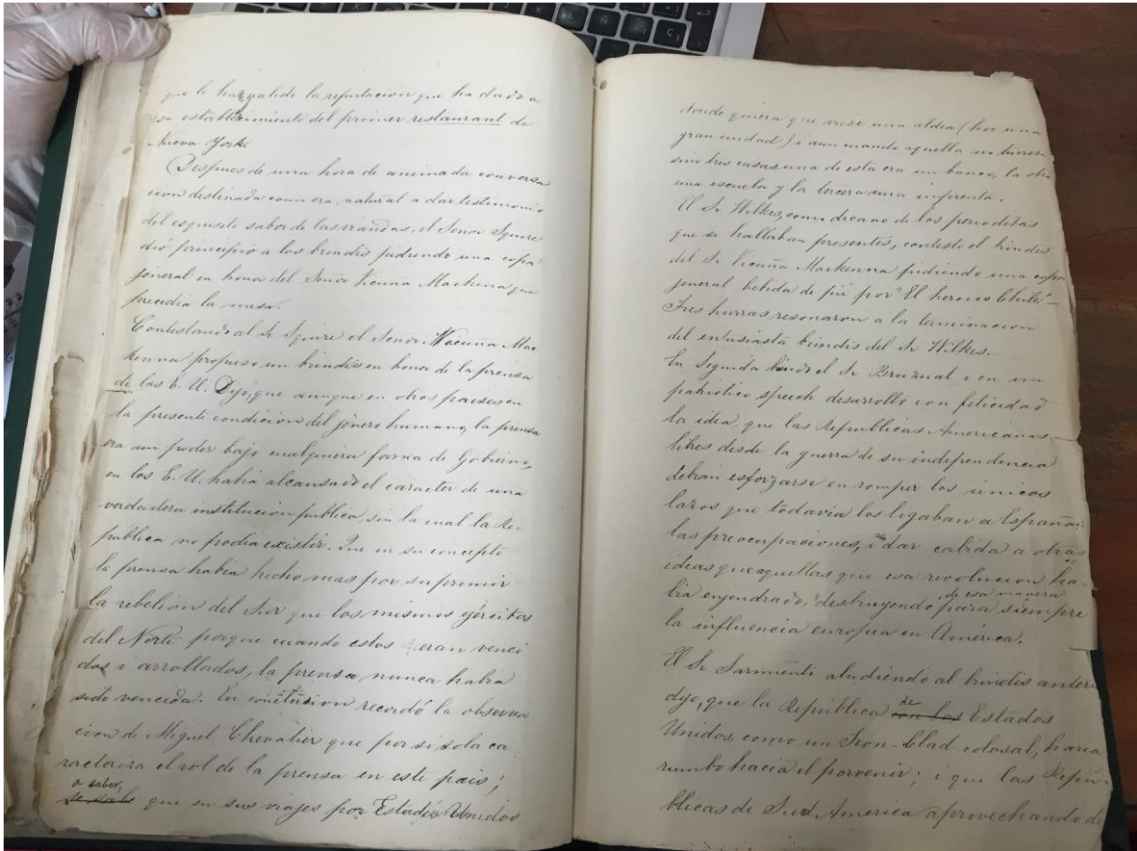 que le ha valido la reputacion que ha dado a
su establecimiento del primer restaurant de
Nueva York
Despues de una hora de animada conversa
cion destinada como era, natural a dar testimonio
del esquisito sabor de las viandas, el Senor Squire
dió principio a los brindis pidiendo una copa
jeneral en honor del Señor Vicuna Mackena que
precedia la mesa.
Contestando al Sr Squire el Señor Vicuna Mac
kenna propuso un brindis en honor de la prensa
de los E. U. Dijo, que aunque en otros paises en
la presente condicion del jénero humano, la prensa
era un poder bajo cualquiera forma de Gobierno,
en los E. U. habia alcansado el caracter de una
verdadera institucion publica, sin la cual la Re-
publica no podia existir. Que en su concepto
la prensa habia hecho mas por suprimir
la rebelion del Sur que los mismos ejércitos
del Norte porque cuando estos eran venci
dos i arrollados, la prensa nunca habia
sido vencida. En recordó la observa
cion de Miguel Chevalier que por si sola ca
racteriza el rol de la prensa en este pais;
a saber,
que en sus viajes por Estados Unidos
donde quiera que viese una aldea (hoi una
gran ciudad) i aun cuando aquella no tuviese
sino tres casas una de esta era un banco, la otra
una escuela y la tercera una imprenta.
El Sr Wilkes, como decano de los periodistas
que se hallaban presentes, contesto el brindis
del Sr Vicuña Mackenna pidiendo una copa
jeneral bebida de pié por "El heroico Chile" –
Tres hurras resonaron a la terminacion
del entusiasta brindis del Sr Wilkes.
En Seguida brindó el Sr Bruzual i en un
patriotico speech desarrollo con felicidad
la idea, que las Republicas Americanas
libres desde la guerra de su independencia
debian esforzarse en romper los unicos
lazos que todavia las ligaban a España:
las preocupaciones, i dar cabida a otras
ideas que aquellas que esa revolucion ha-
de esa manera
bia enjendrado, destruyendo para siempre
la influencia europea en América.
El Sr Sarmiento aludiendo al brindis anteri
dijo, que la República de
con los Estados
Unidos, como un Iron-Clad colosal, haria
rumbo hacia el porvenir; i que las Repú-
blicas de Sud America aprovechando de